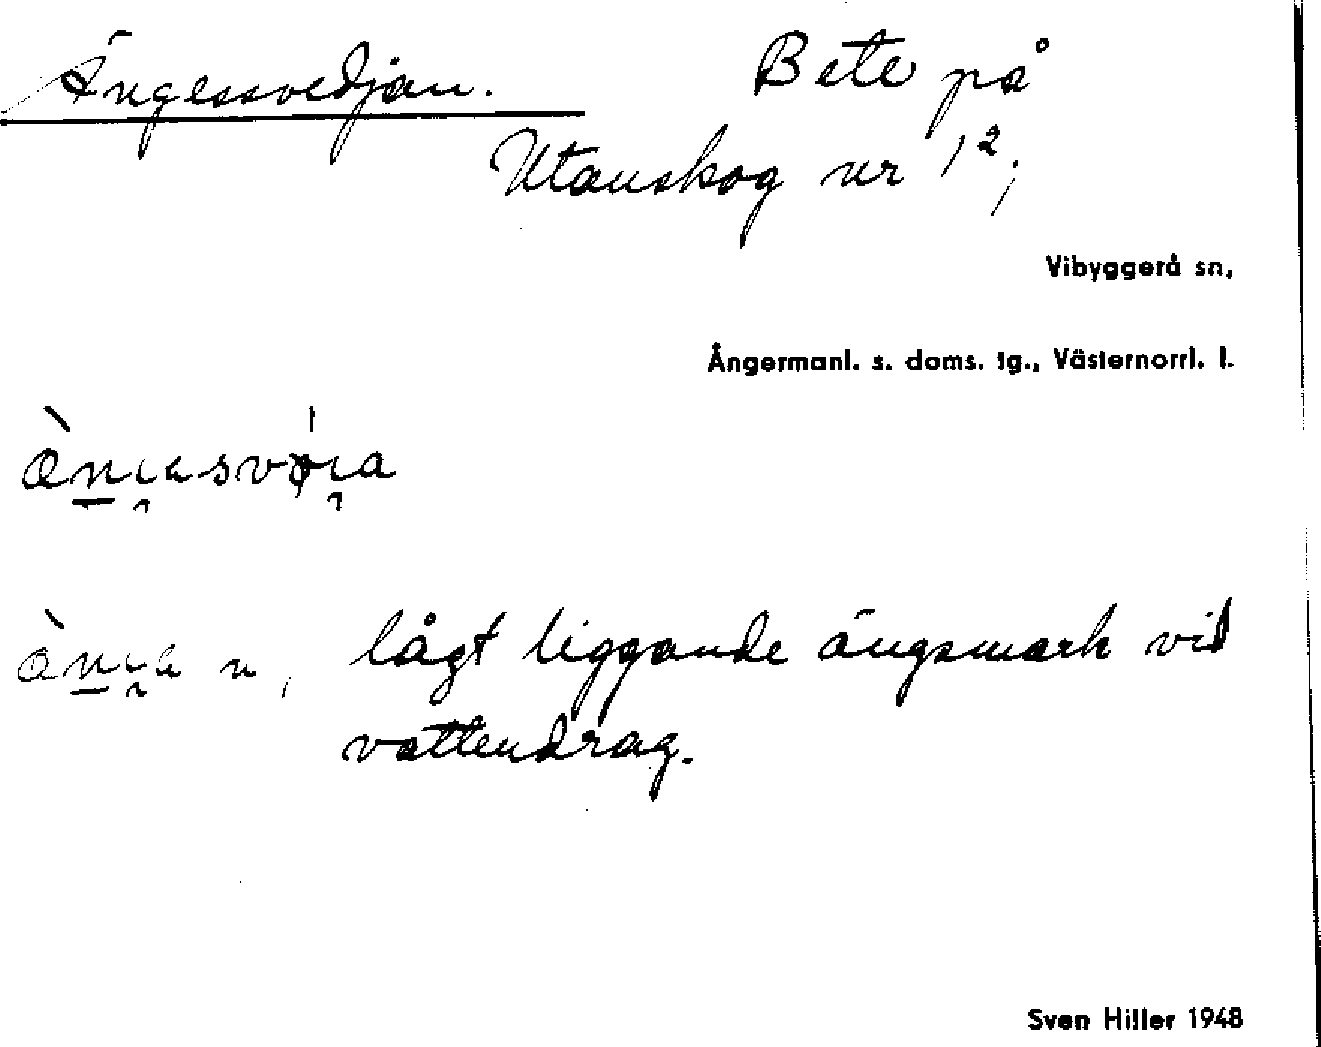 Ängessvedjan. Bete på
Utanskog nr 1²;
Vibyggerå sn,
Ångermanl. s. doms. tg., Västernorrl. l.
n, lågt liggande ängsmark vid
vattendrag.
Sven Hiller 1948